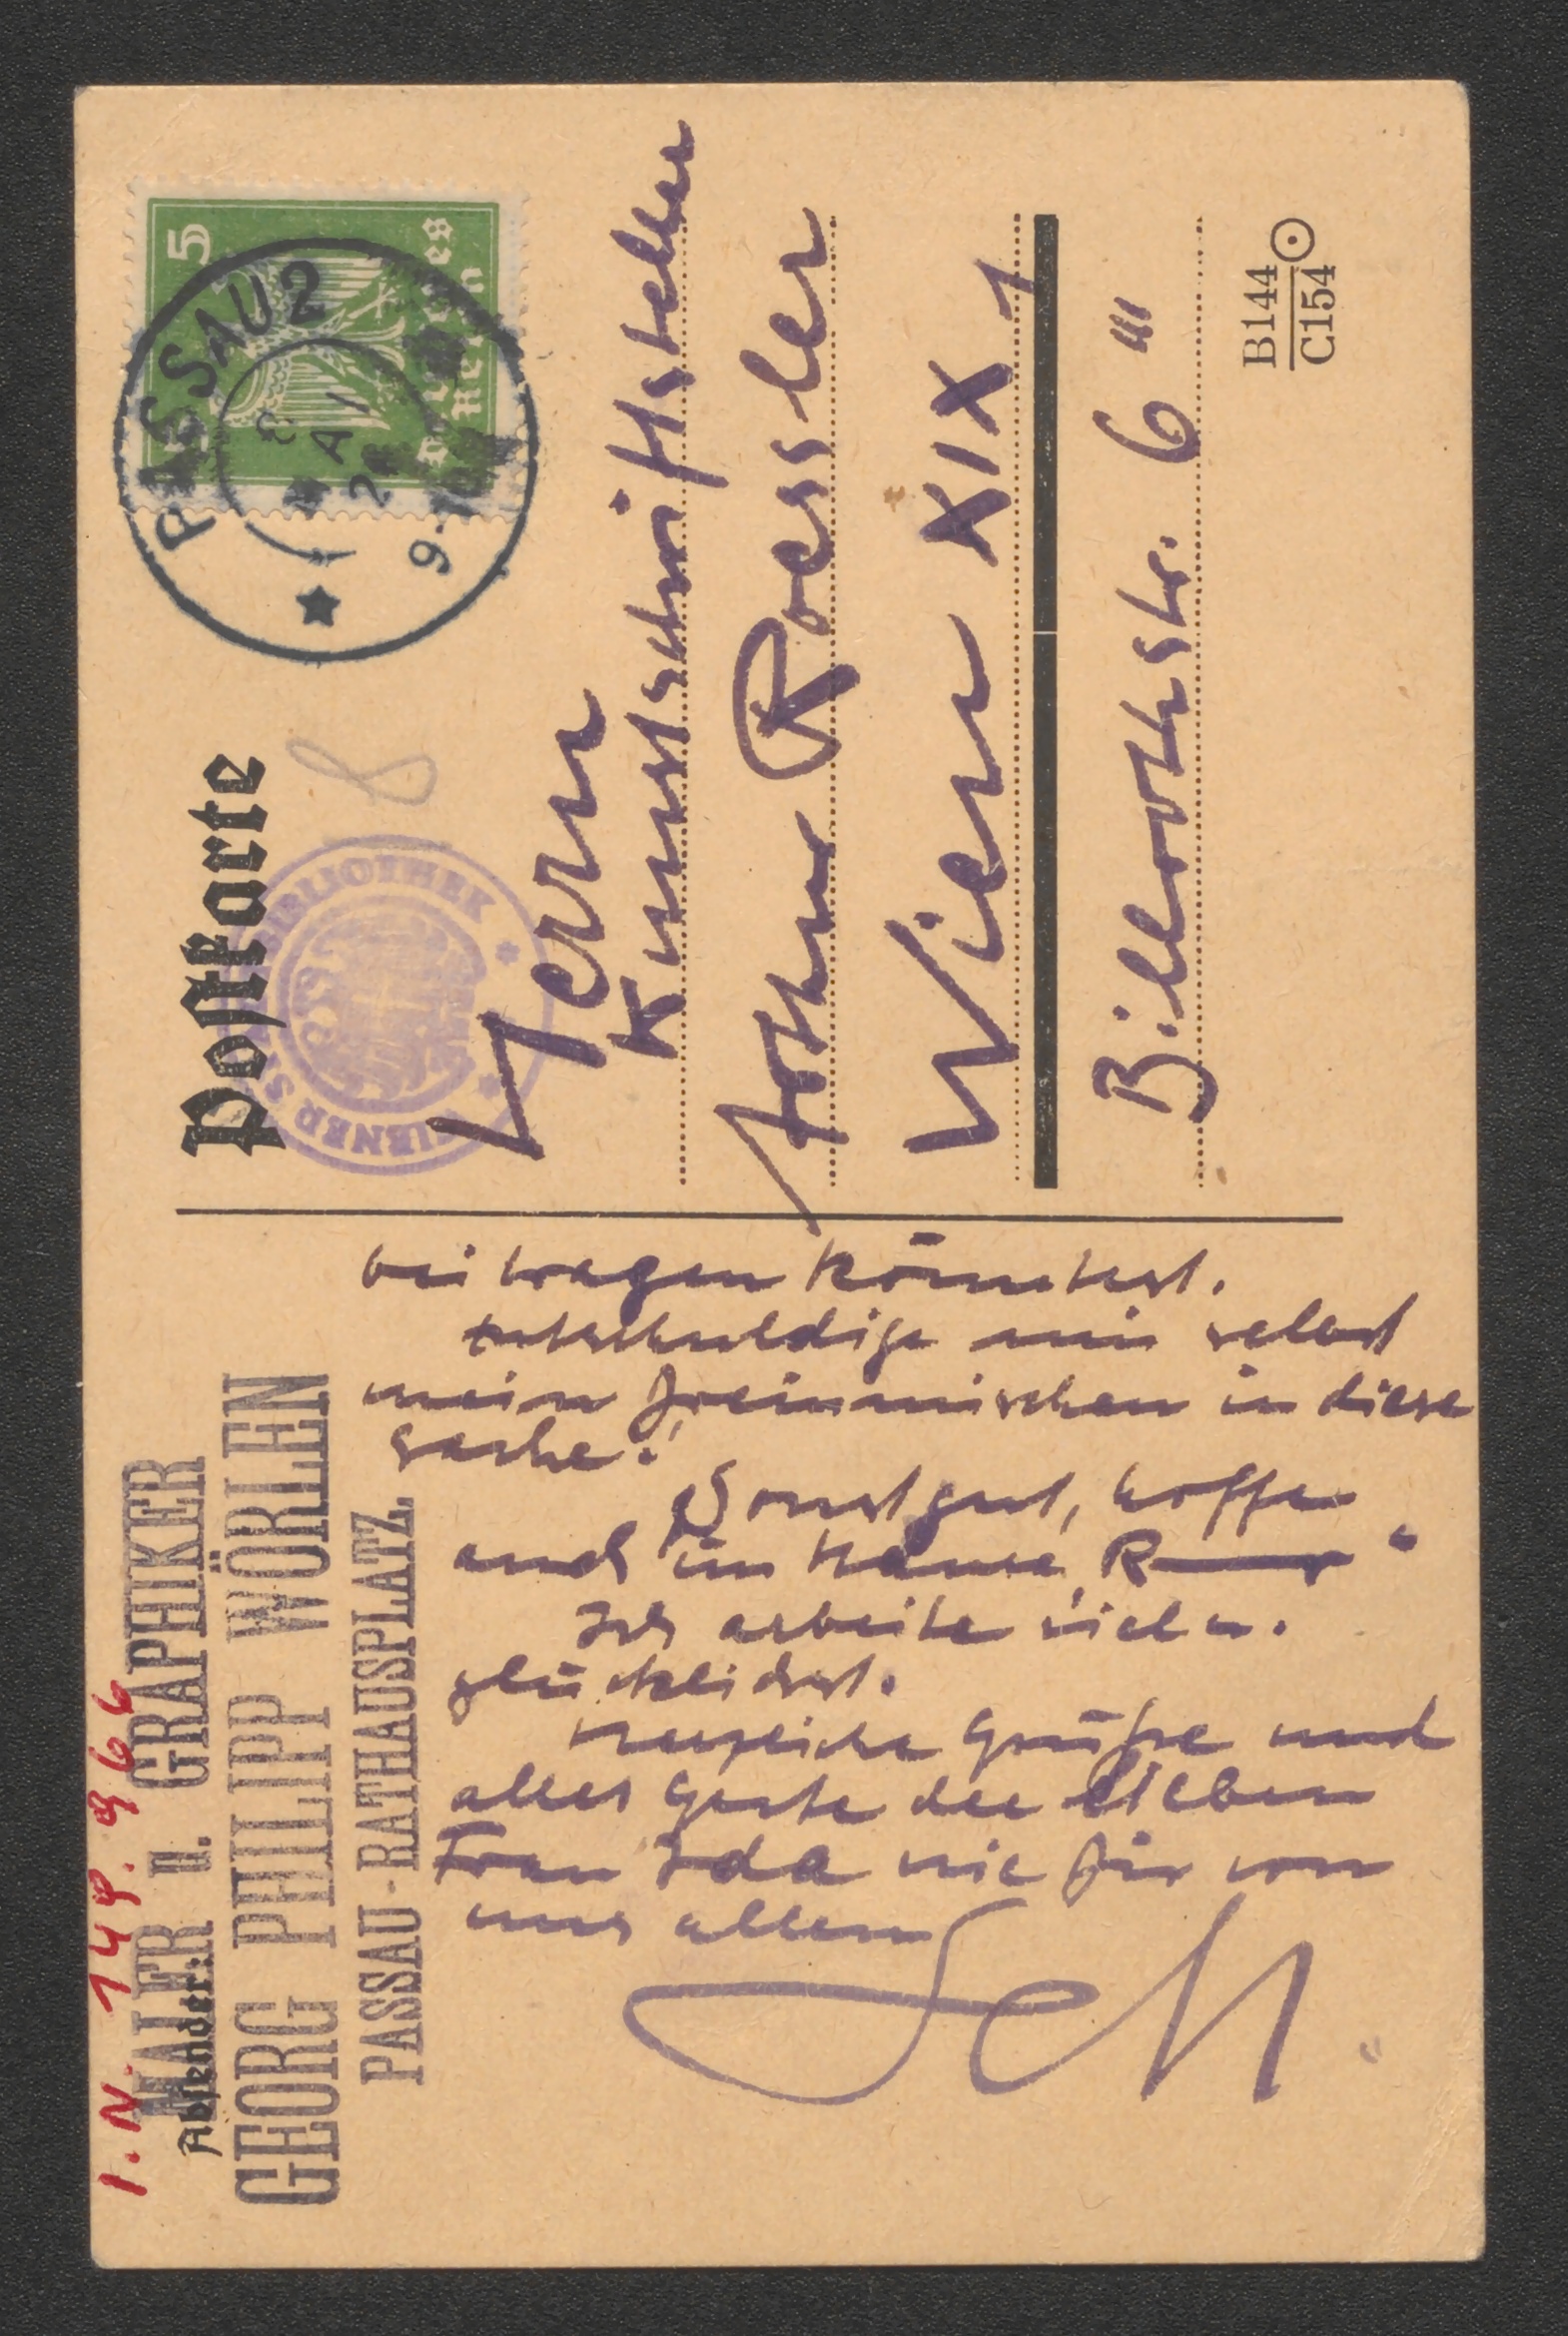 I.N. 149.966
Absender:
MALER u. GRAPHIKER
GEORG PHILIPP WÖRLEN
PASSAU-RATHAUSPLATZ
beitragen könntest.
Entschuldige mir selbst
mein in diese
Sache!
Sonst gut, hoffe
auch im Hause R
Ich arbeite viel u.
glücklichst.
Herzliche Grüße und
alles Gute der lieben
Frau Ida wie für von
uns allem
Postkarte
8
WIENER STADTBIBLIOTHEK
PASSAU 2
MAI
5
Deutsches
Reich
Herrn
Kunstschriftsteller
Arthur Roessler
Wien XIX
Billrothstr. 6
B144
C154